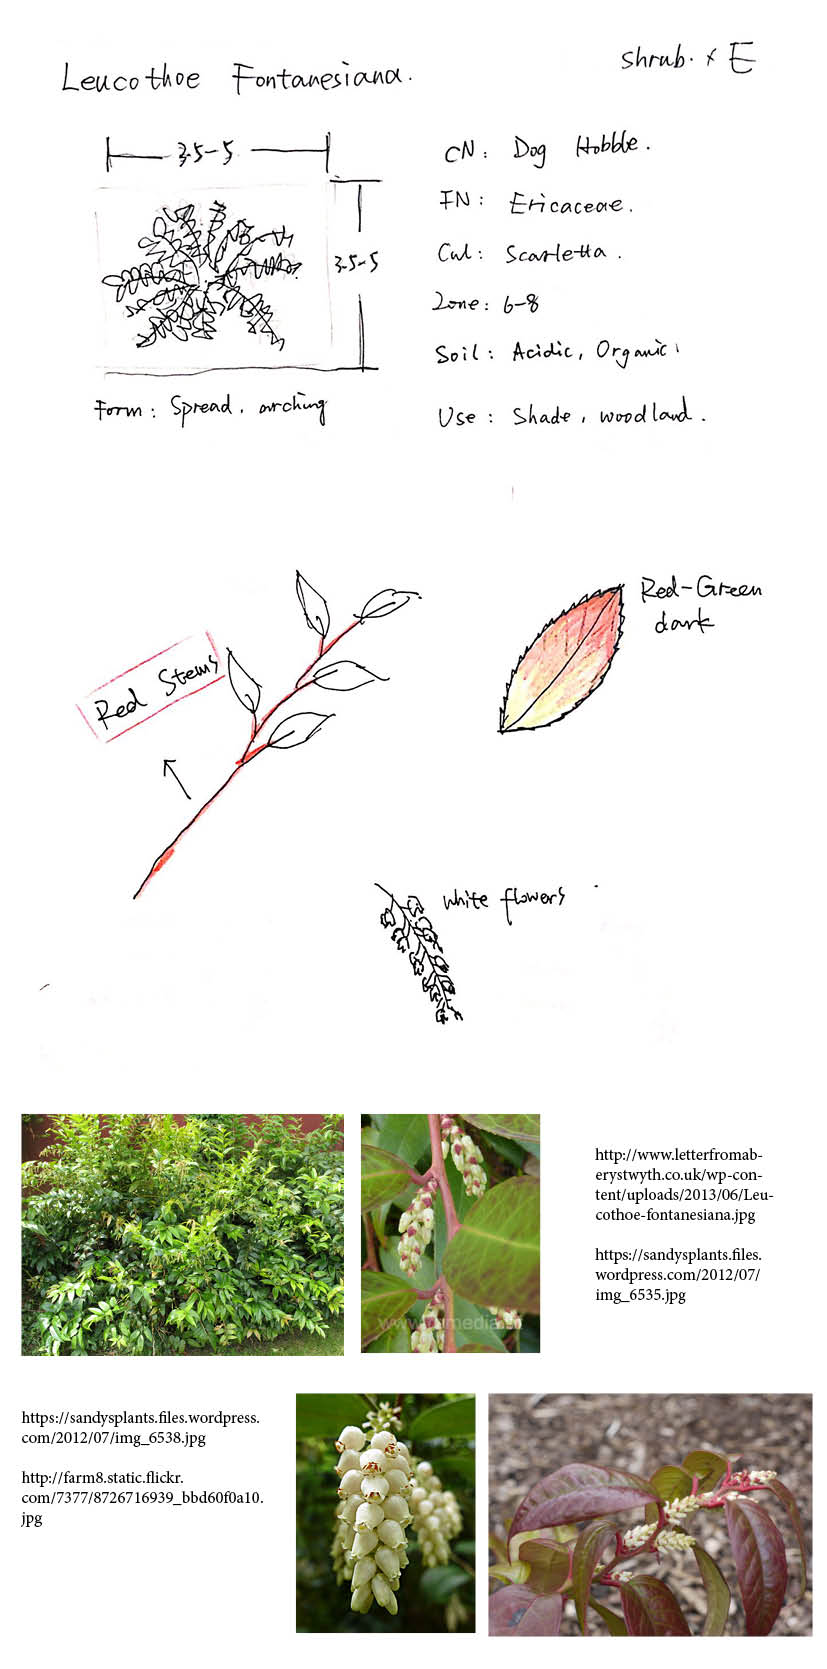 Leucothoe Fontanesiana.
shrub. x E
3.5-5
3.5-5
Form: Spread, arching
CN: Dog Hobble.
FN: Ericaceae.
Cul: Scarletta.
Zone: 6-8
Soil: Acidic, Organic.
Use: Shade, woodland.
Red Stems
Red-Green
dark
white flowers
http://www.letterfromab-
erystwyth.co.uk/wp-con-
tent/uploads/2013/06/Leu-
cothoe-fontanesiana.jpg
https://sandysplants.files.
wordpress.com/2012/07/
img_6535.jpg
https://sandysplants.files.wordpress.
com/2012/07/img_6538.jpg
http://farm8.static.flickr.
com/7377/8726716939_bbd60f0a10.
jpg